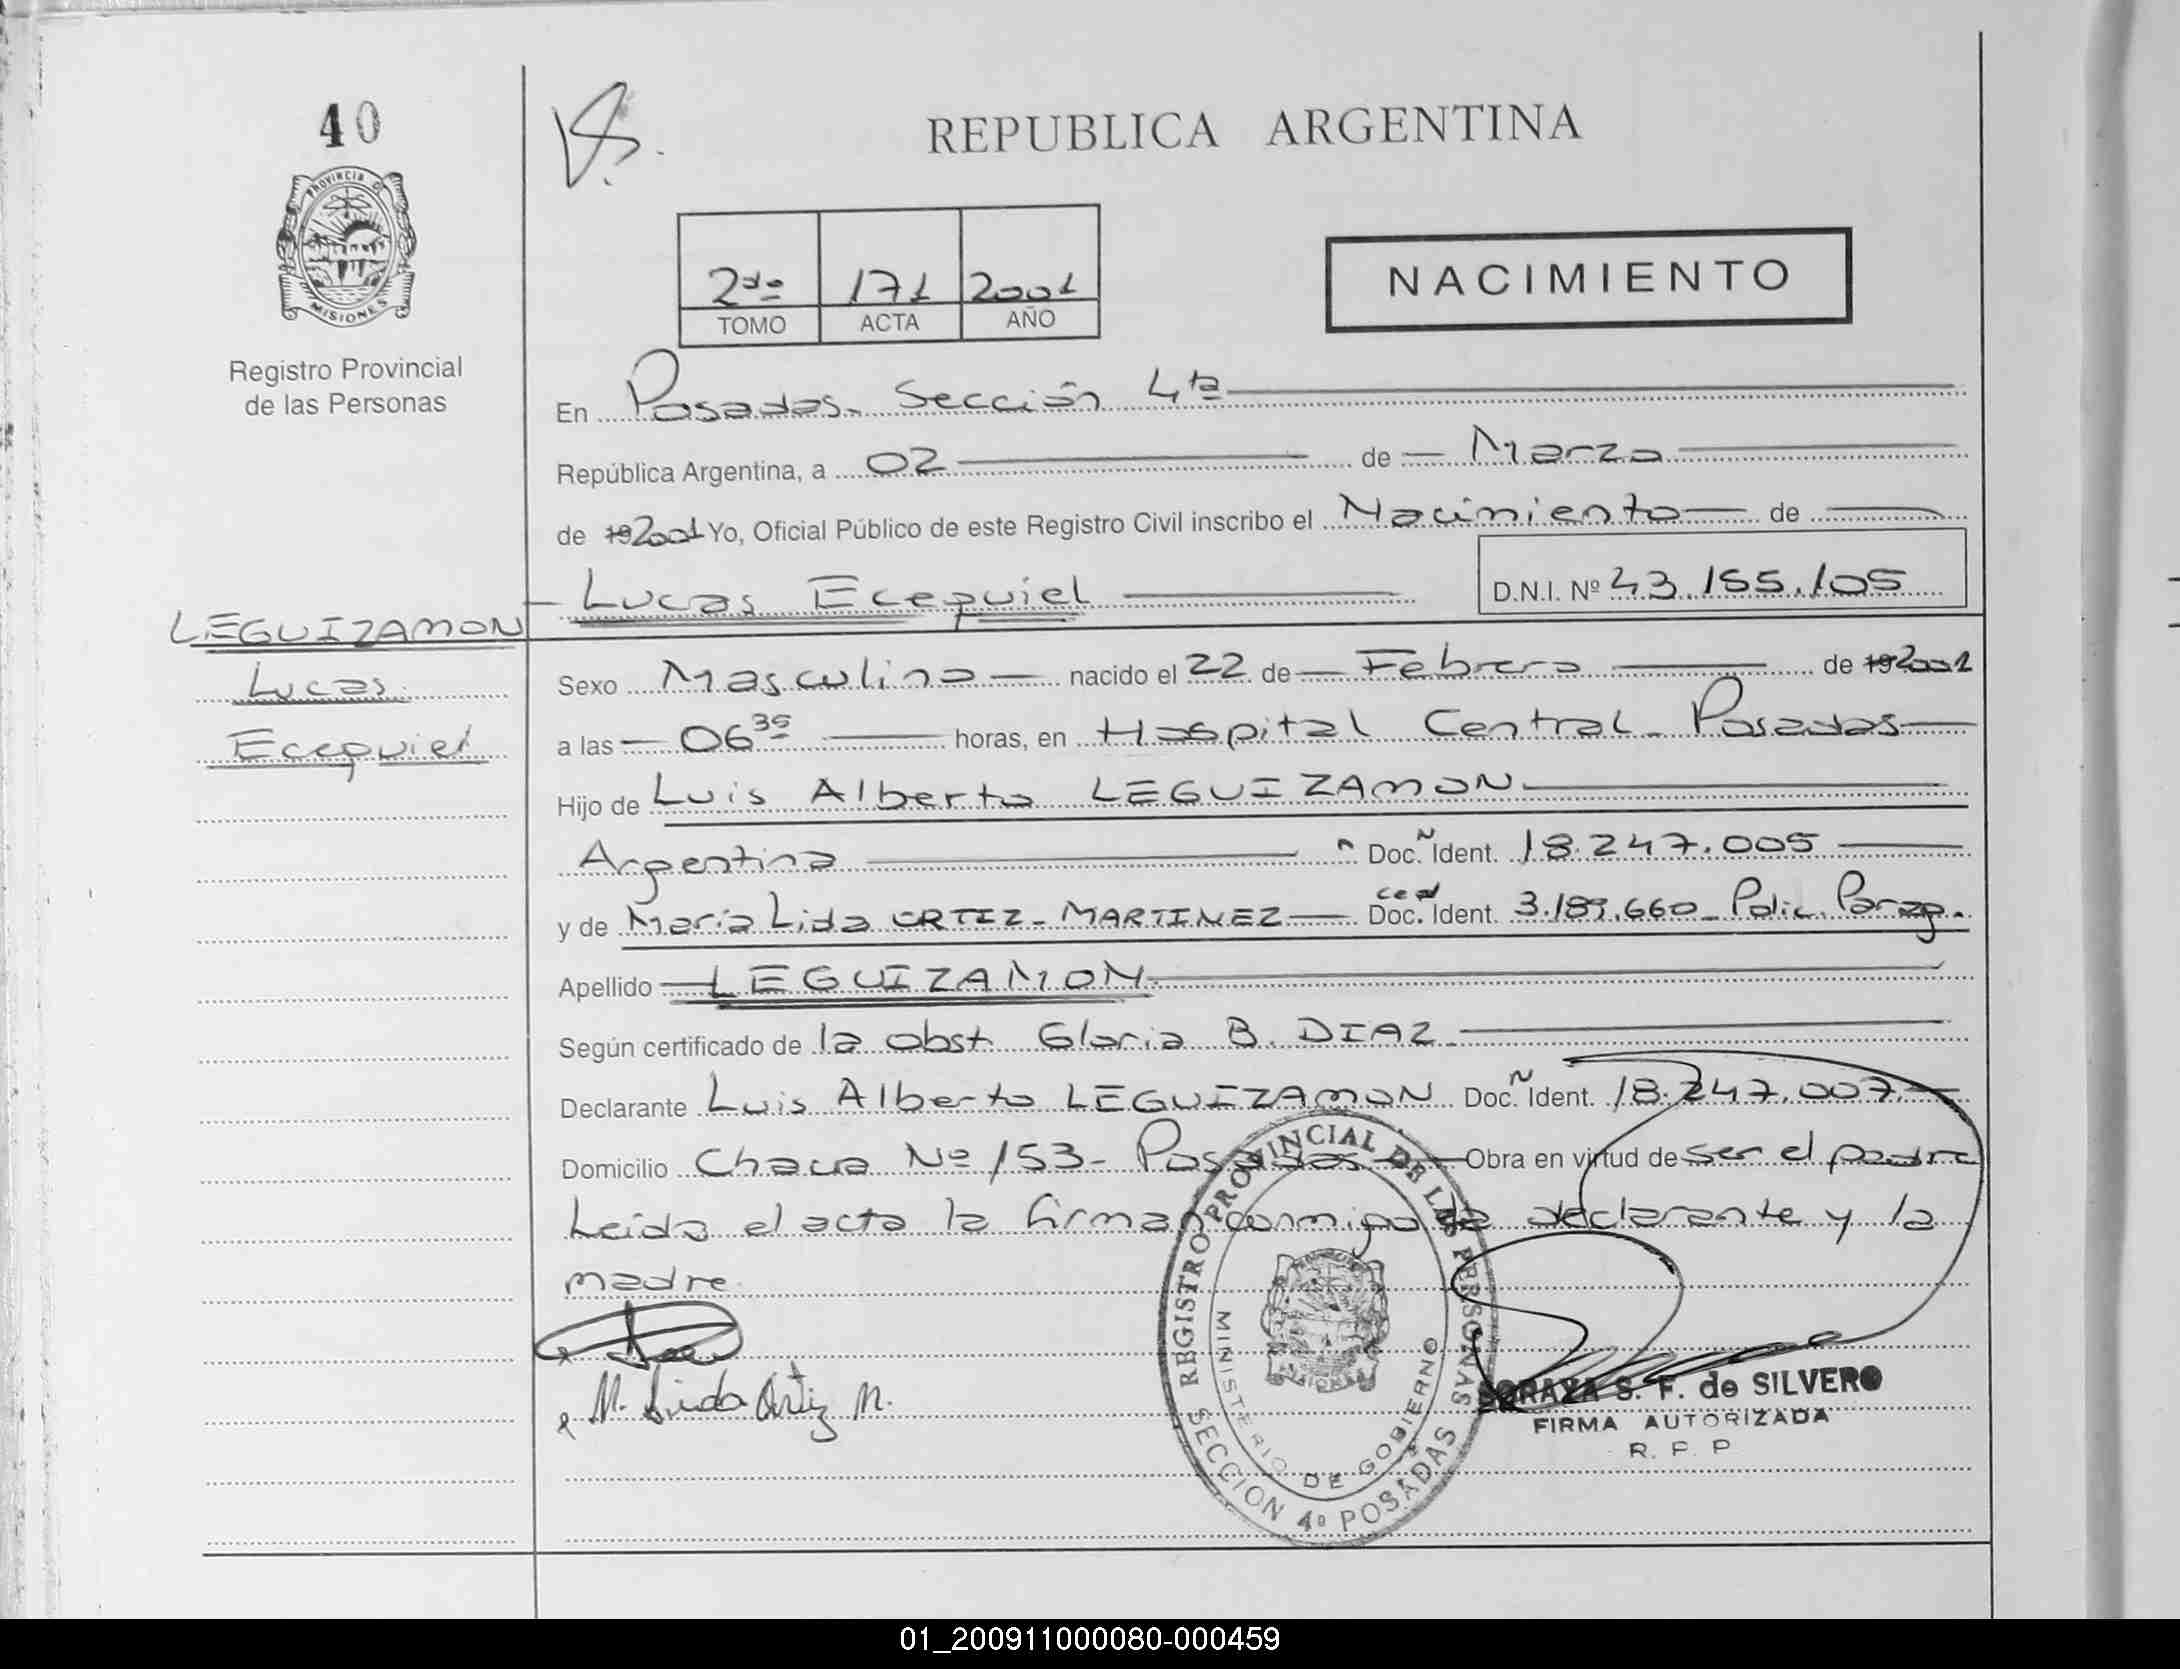 40
REPUBLICA ARGENTINA
PROVINCIA D
MISIONES
2do 171 2001
TOMO ACTA AÑO
NACIMIENTO
Registro Provincial
de las Personas
En Posadas. Sección 4ta
República Argentina, a 02 de Marzo
de 19 2001 Yo, Oficial Público de este Registro Civil inscribo el Nacimiento de
Lucas Ecequiel D.N.I. Nº 43.155.105
LEGUIZAMON
Lucas
Ecequiel
Sexo Masculino nacido el 22 de Febrero de 19 2001
a las 06 35 horas, en Hospital Central - Posadas
Hijo de Luis Alberto LEGUIZAMON
Argentina Doc. Ident. 18.247.005
y de María Lida ORTIZ - MARTINEZ ced Doc. Ident. 3.189.660 - Polic. Parag.
Apellido LEGUIZAMON
Según certificado de la obst. Gloria B. DIAZ
Declarante Luis Alberto LEGUIZAMON Doc. Ident. 18.247.007
Domicilio Chacra Nº 153 - Posadas Obra en virtud de ser el padre
Leida el acta la firman conmigo declarante y la
madre
M. Lida Ortiz M.
REGISTRO PROVINCIAL DE LAS PERSONAS
MINISTERIO DE GOBIERNO
SECCION 4º POSADAS
SORAYA S. F. de SILVERO
FIRMA AUTORIZADA
R. P. P
01_200911000080-000459